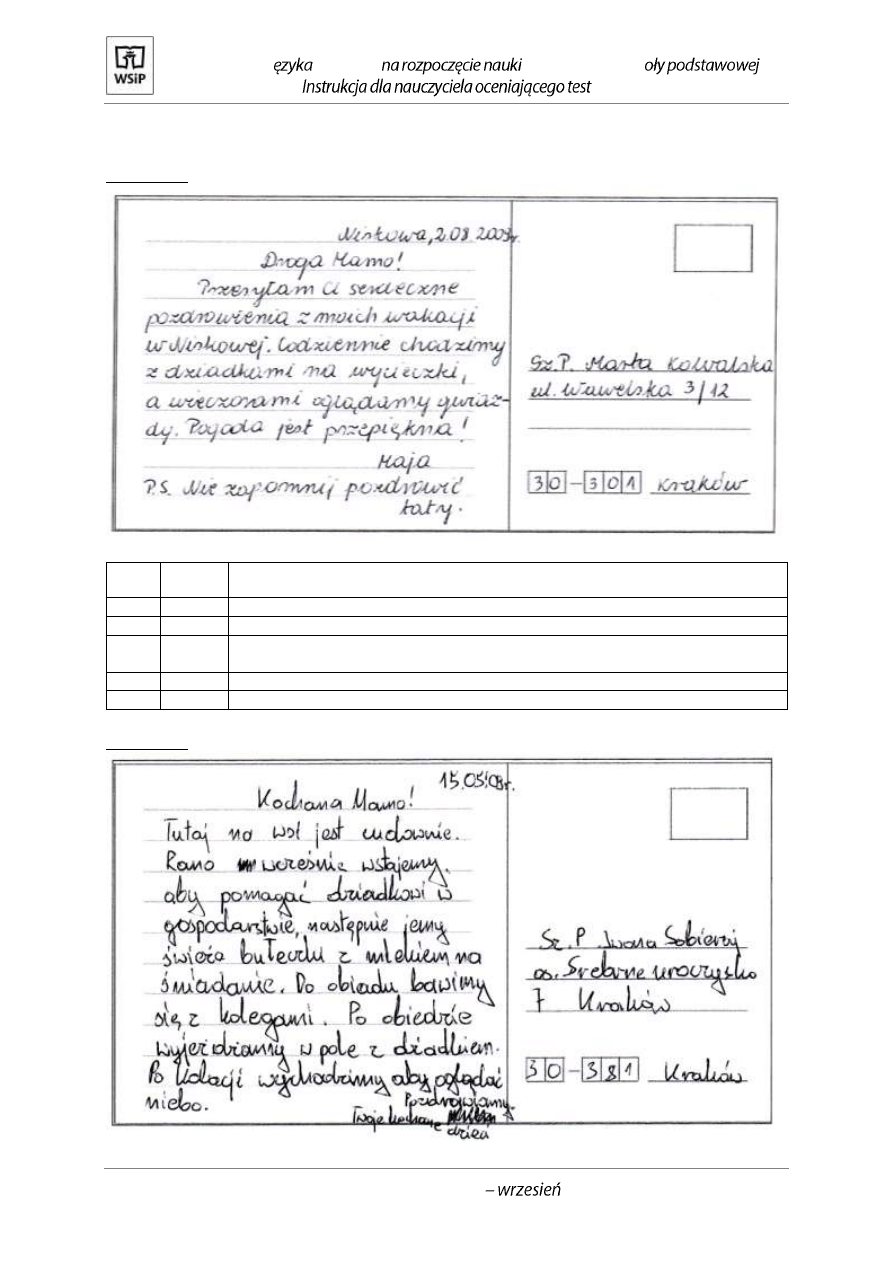 WSiP
ęzyka na rozpoczęcie nauki oły podstawowej
Instrukcja dla nauczyciela oceniającego test
Niskowa, 2.08.2009r.
Droga Mamo!
Przesyłam Ci serdeczne
pozdrowienia z moich wakacji
w Niskowej. Codziennie chodzimy
z dziadkami na wycieczki,
a wieczorami oglądamy gwiaz-
dy. Pogoda jest przepiękna!
Maja
P.S. Nie zapomnij pozdrowić
taty.
Sz.P. Marta Kowalska
ul. Wawelska 3/12
30-301 Kraków
15.05.08r.
Kochana Mamo!
Tutaj na wsi jest cudownie.
Rano wcześnie wstajemy,
aby pomagać dziadkowi w
gospodarstwie, następnie jemy
świeżą bułeczkę z mlekiem na
śniadanie. Do obiadu bawimy
się z kolegami. Po obiedzie
wyjeżdżamy w pole z dziadkiem.
Po kolacji wychodzimy aby oglądać
niebo.
Pozdrowiamy
Twoje kochane
dzieci
Sz. P. Iwona Sobieraj
os. Srebrne uroczysko
7 Kraków
30-381 Kraków
– wrzesień